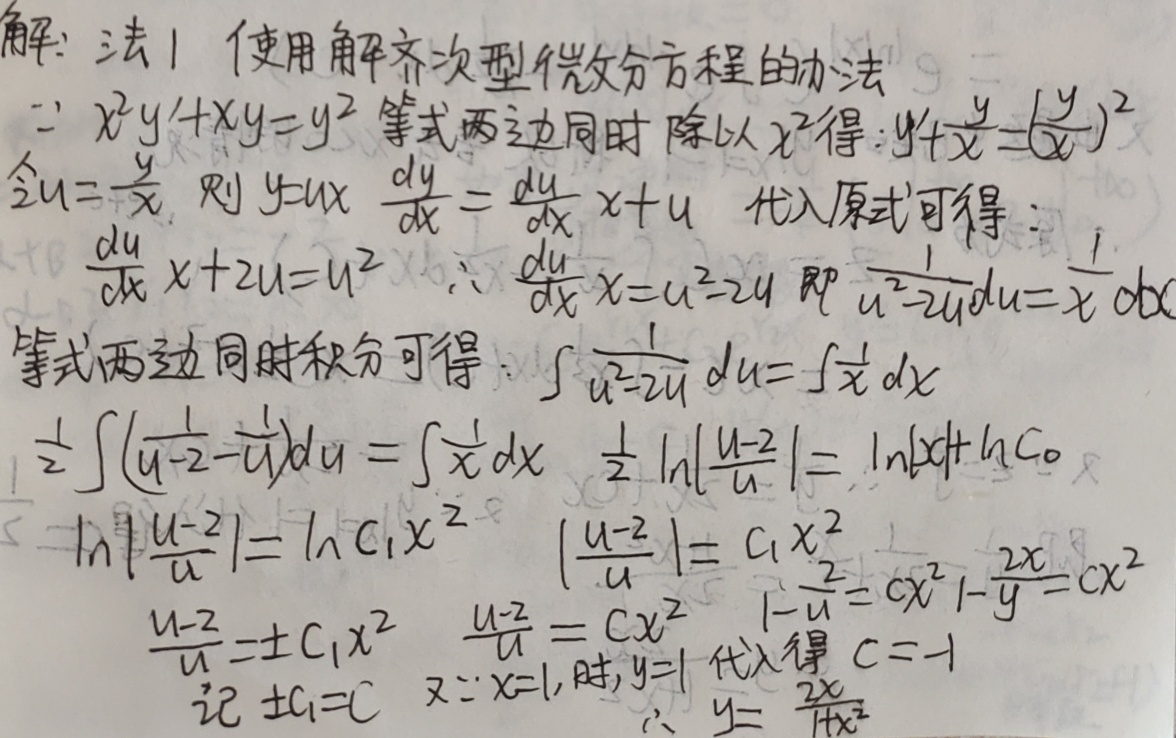 解: 法1 使用解齐次型微分方程的办法
∵ x²y'+xy=y² 等式两边同时除以x²得:y'+y/x=(y/x)²
令u=y/x 则 y=ux dy/dx=du/dx x+u 代入原式可得:
du/dx x+2u=u² ∴ du/dx x=u²-2u 即 1/(u²-2u)du=1/x dx
等式两边同时积分可得: ∫1/(u²-2u) du=∫1/x dx
1/2∫(1/(u-2)-1/u)du=∫1/x dx 1/2 ln|(u-2)/u|=ln|x|+lnC₀
ln|(u-2)/u|=lnC₁x² |(u-2)/u|=C₁x²
(u-2)/u=±C₁x² (u-2)/u=Cx² 1-2/u=Cx² 1-2x/y=Cx²
记 ±C₁=C 又∵x=1,时,y=1 代入得 C=-1
∴ y=2x/(1+x²)